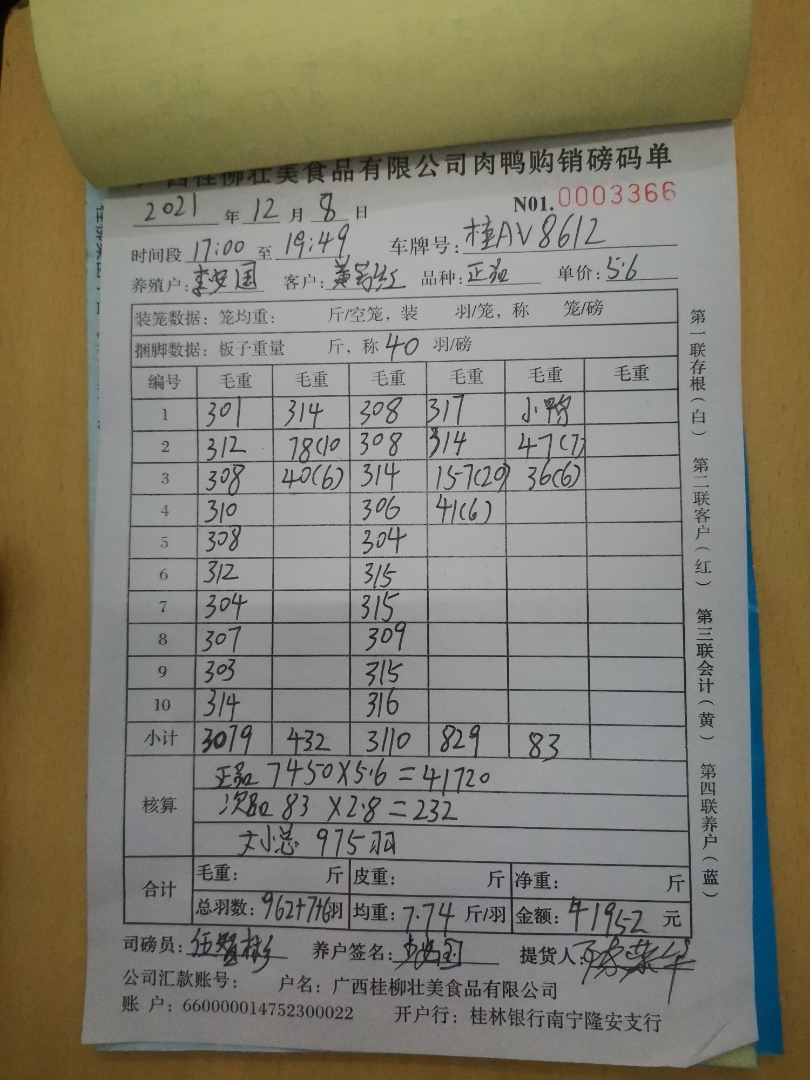 广西桂柳壮美食品有限公司肉鸭购销磅码单
2021 年 12 月 8 日 N01.0003366
时间段 17:00 至 19:49 车牌号: 桂AV8612
养殖户: 李 国 客户: 黄 红 品种: 正品 单价: 5.6
装笼数据: 笼均重: 斤/空笼, 装 羽/笼, 称 笼/磅
捆脚数据: 板子重量 斤, 称 40 羽/磅
编号 毛重 毛重 毛重 毛重 毛重 毛重
1 301 314 308 317 小鸭
2 312 78(10 308 314 47(7)
3 308 40(6) 314 157(20) 36(6)
4 310 306 41(6)
5 308 304
6 312 315
7 304 315
8 307 309
9 303 315
10 314 316
小计 3079 432 3110 829 83
正品 7450×5.6=41720
核算 次品 83×2.8=232
大小总 975羽
合计 毛重: 斤 皮重: 斤 净重: 斤
总羽数: 962+7+6羽 均重: 7.74 斤/羽 金额: 41952 元
司磅员: 伍 彬 养户签名: 国 提货人: 荣华
公司汇款账号: 户名: 广西桂柳壮美食品有限公司
账 户: 660000014752300022 开户行: 桂林银行南宁隆安支行
第一联存根(白) 第二联客户(红) 第三联会计(黄) 第四联养户(蓝)